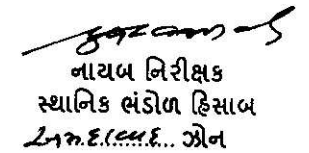 નાયબ નિરીક્ષક
સ્થાનિક ભંડોળ હિસાબ
અમદાવાદ... ઝોન